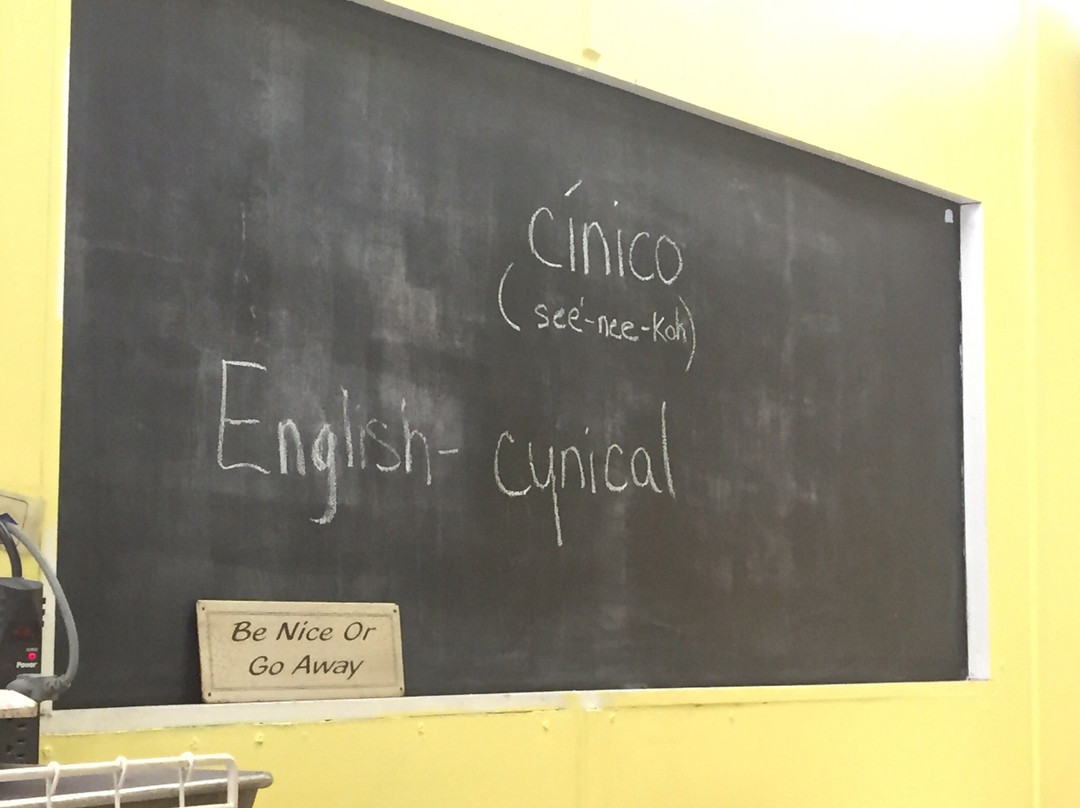 cínico
(seé-nee-koh)
English- cynical
Be Nice Or
Go Away
Power